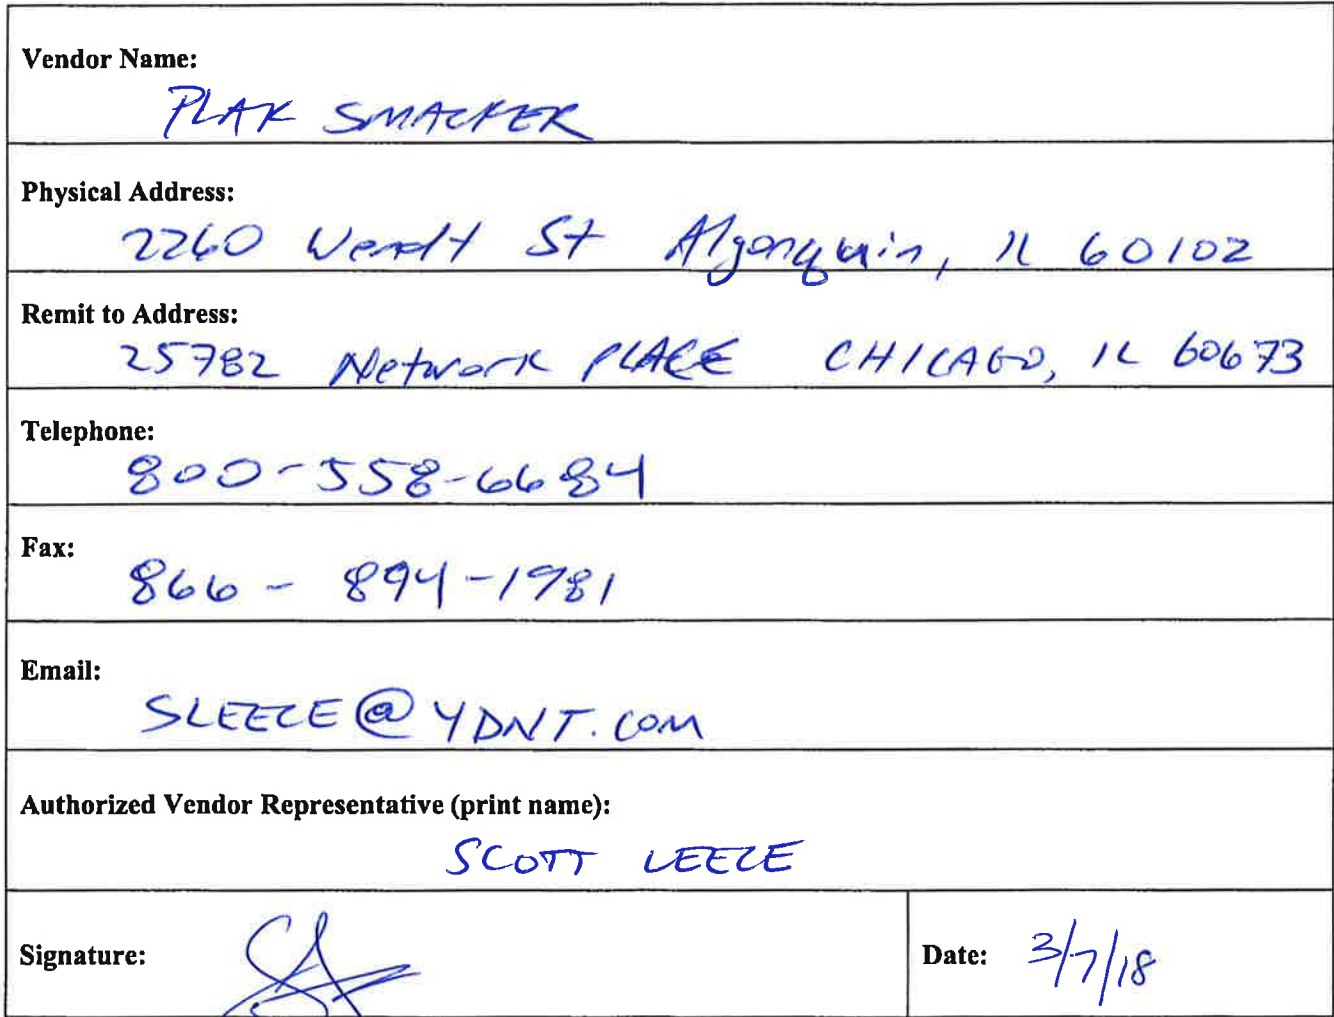 Vendor Name:
PLAK SMACKER
Physical Address:
2260 Wendt St Algonquin, IL 60102
Remit to Address:
25782 Network PLACE CHICAGO, IL 60673
Telephone:
800-558-6684
Fax:
866 - 894-1981
Email:
SLEECE@YDNT.COM
Authorized Vendor Representative (print name):
SCOTT LEECE
Signature:
Date: 3/7/18